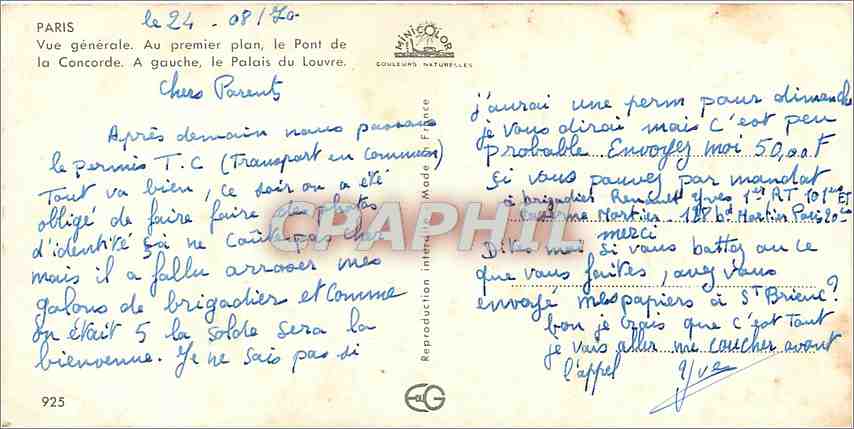 PARIS
Vue générale. Au premier plan, le Pont de
la Concorde. A gauche, le Palais du Louvre.
le 24 - 08/70
MINICOLOR
COULEURS NATURELLES
Chers Parents
Après demain nous passons
le permis T.C (Transport en commun)
Tout va bien, ce soir on a été
obligé de faire faire des photos
d'identité ça ne coûte pas cher
mais il a fallu arroser mes
galons de brigadier et comme
on était 5 la solde sera la
bienvenue. Je ne sais pas si
925
Reproduction interdite Made in France
CPARHIL
EG
j'aurai une perm pour dimanche
je vous dirai mais c'est peu
probable Envoyez moi 50,00F
si vous pouvez par mandat
à brigadier Renault Yves 1er RT 101e
Caserne Mortier - 128 bd Mortier Paris 20e
merci
Dites moi si vous battez ou ce
que vous faites, avez vous
envoyé mes papiers à St Brieuc?
bon je crois que c'est tout
je vais aller me coucher avant
l'appel
Yves